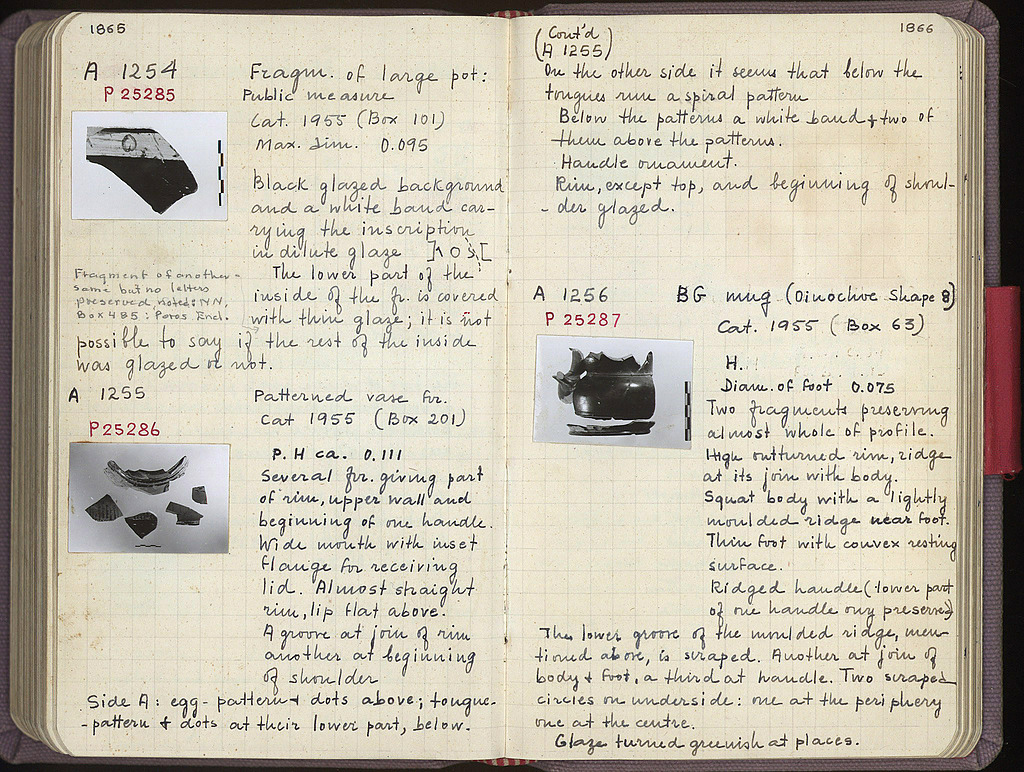 1865
A 1254
P 25285
Fragm. of large pot:
Public measure
Cat. 1955 (Box 101)
Max. dim. 0.095
Black glazed background
and a white band car-
rying the inscription
in dilute glaze
The lower part of the
inside of the fr. is covered
with thin glaze; it is not
possible to say if the rest of the inside
was glazed or not.
Fragment of another-
same but no letters
preserved noted: NN,
Box 485: Poros Encl.
A 1255
P 25286
Patterned vase fr.
Cat 1955 (Box 201)
P. H ca. 0.111
Several fr. giving part
of rim, upper wall and
beginning of one handle.
Wide mouth with inset
flange for receiving
lid. Almost straight
rim, lip flat above.
A groove at join of rim
another at beginning
of shoulder
Side A: egg-pattern dots above; tongue-
-pattern & dots at their lower part, below.
1866
(Cont'd
A 1255)
On the other side it seems that below the
tongues run a spiral pattern
Below the patterns a white band & two of
them above the patterns.
Handle ornament.
Rim, except top, and beginning of shoul-
-der glazed.
A 1256
P 25287
BG mug (Oinochoe Shape 8)
Cat. 1955 (Box 63)
H.
Diam. of foot 0.075
Two fragments preserving
almost whole of profile.
High outturned rim, ridge
at its join with body.
Squat body with a lightly
moulded ridge near foot.
Thin foot with convex resting
surface.
Ridged handle (lower part
of one handle ony preserved)
The lower groove of the moulded ridge, men-
tioned above, is scraped. Another at join of
body & foot, a third at handle. Two scraped
circles on underside: one at the periphery
one at the centre.
Glaze turned greenish at places.